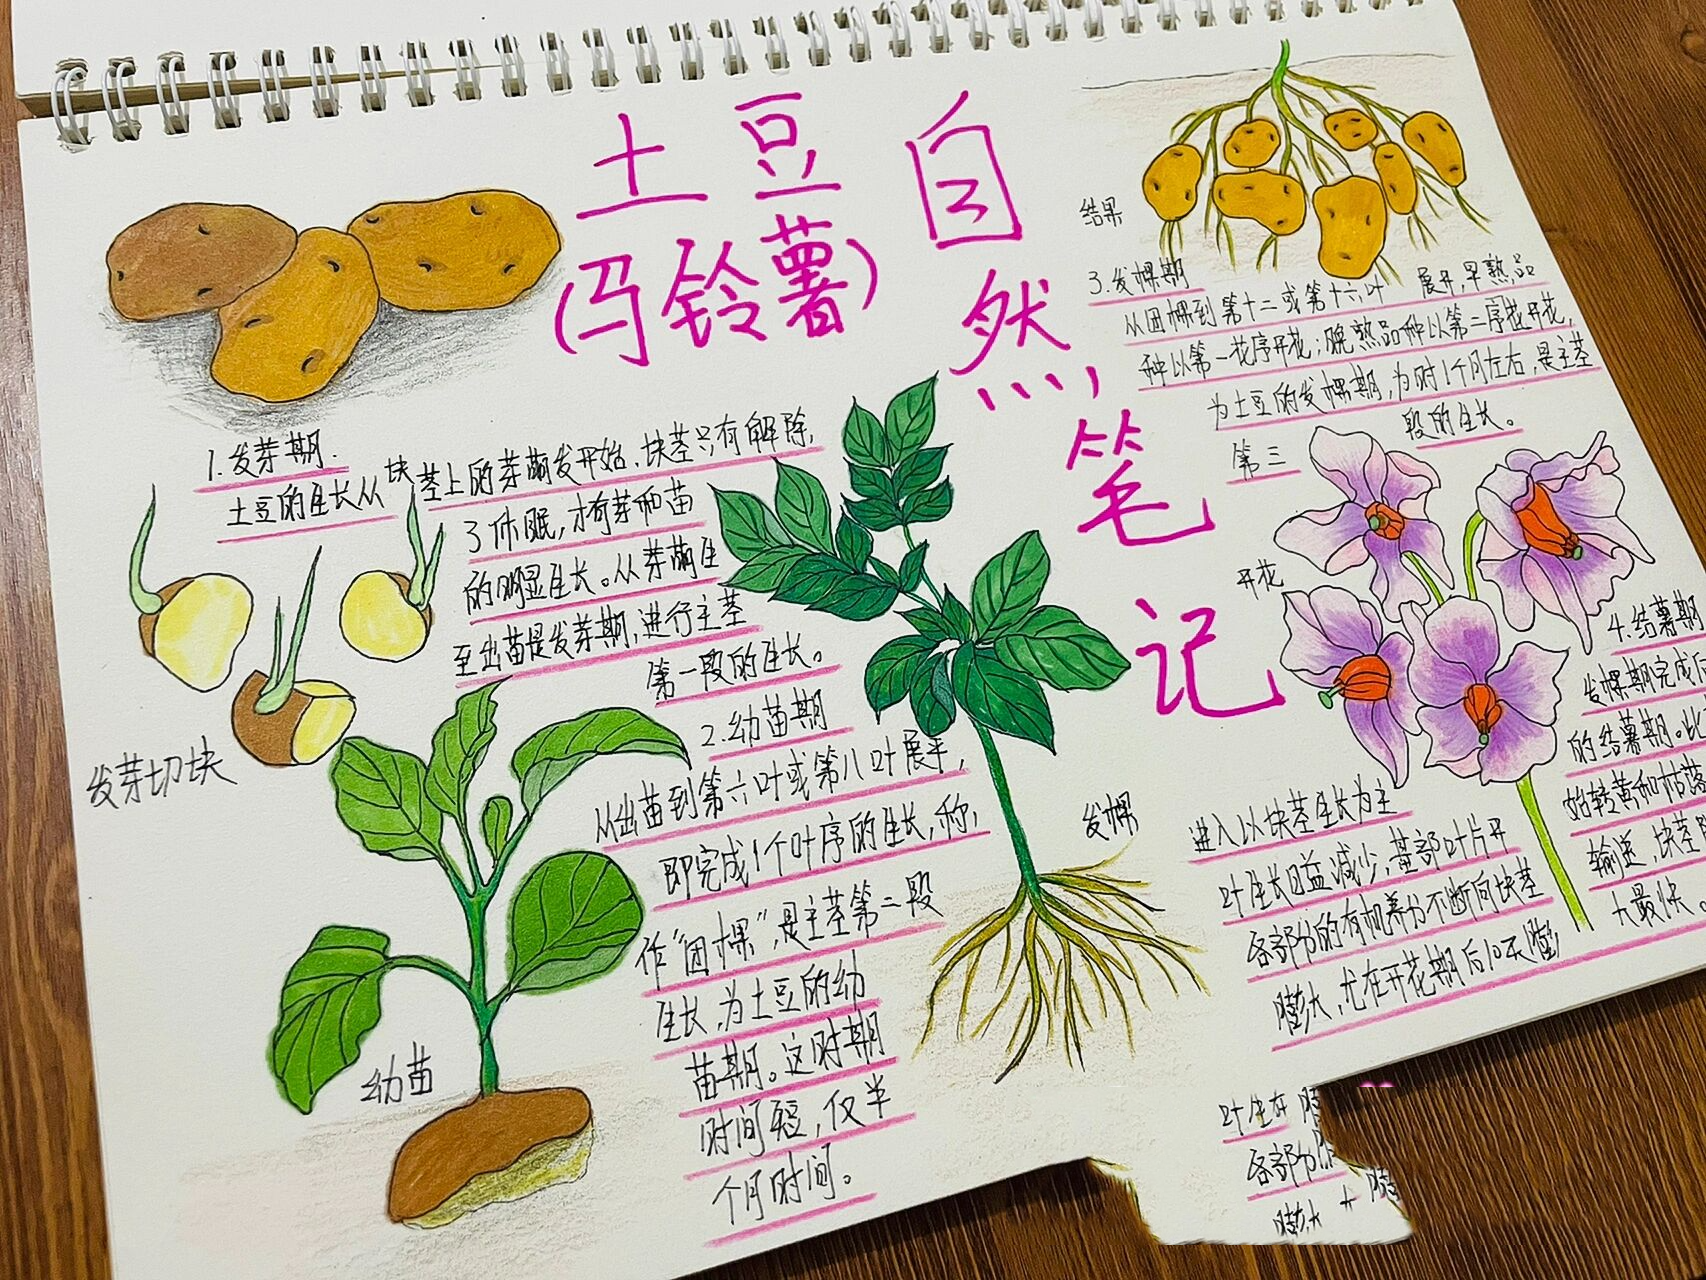 土豆
(马铃薯)
自然笔记
1.发芽期.
土豆的生长从块茎上的芽萌发开始,块茎只有解除
了休眠,才有芽和苗
的明显生长。从芽萌生
至出苗是发芽期,进行主茎
第一段的生长。
发芽切块
2.幼苗期
从出苗到第六叶或第八叶展平,
即完成1个叶序的生长,称,
作“团棵”,是主茎第二段
生长,为土豆的幼
苗期。这时期
时间短,仅半
个月时间。
幼苗
发棵
结果
3.发棵期
从团棵到第十二或第十六叶 展开,早熟品
种以第一花序开花;晚熟品种以第二序花开花,
为土豆的发棵期,为时1个月左右,是主茎
第三 段的生长。
开花
4.结薯期
发棵期完成后
进入以块茎生长为主 的结薯期。此
叶生长日益减少,基部叶片开 始转黄和枯落
各部分的有机养分不断向块茎 输送,块茎
膨大,尤在开花期后10天膨 大最快。
叶生
各部分
膨大